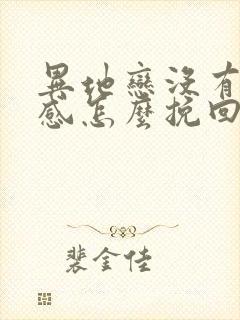 異地戀沒有
感怎麼挽回
裴金佳